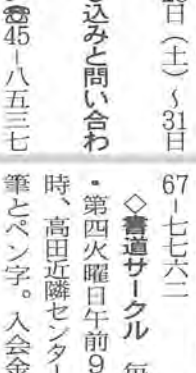 日（土）〜31日
し込みと問い合わ
☎45−八五三七
67−七七六二
◇書道サークル　毎
・第四火曜日午前9
時、高田近隣センター
筆とペン字。入会金